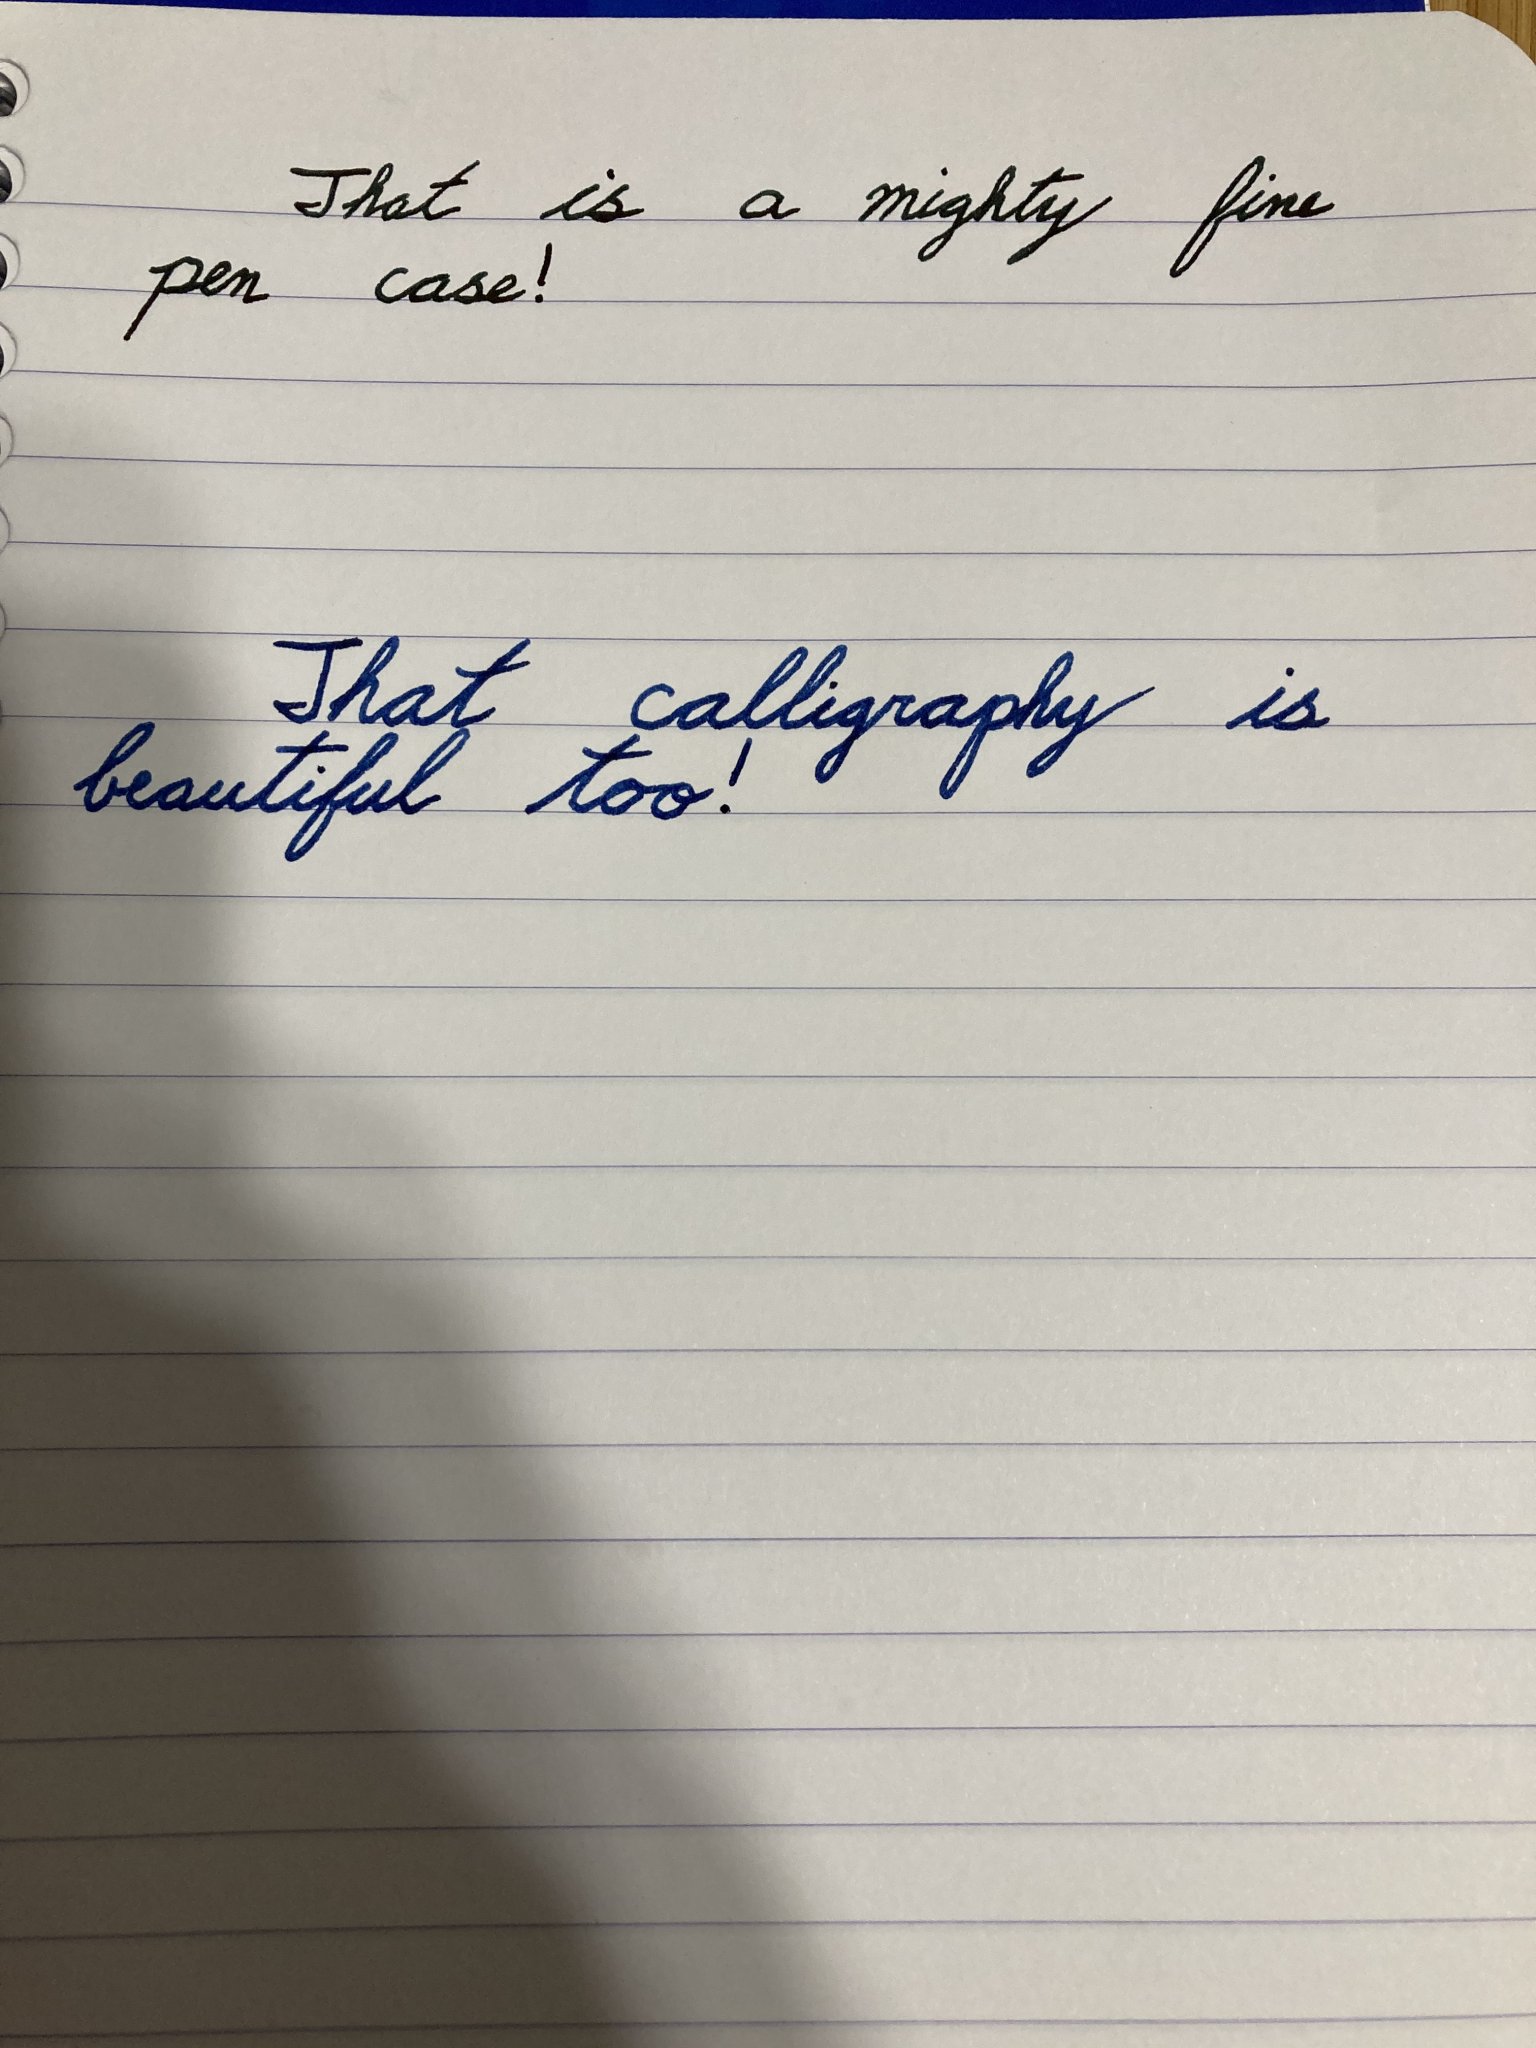 That is a mighty fine
pen case!
That calligraphy is
beautiful too!